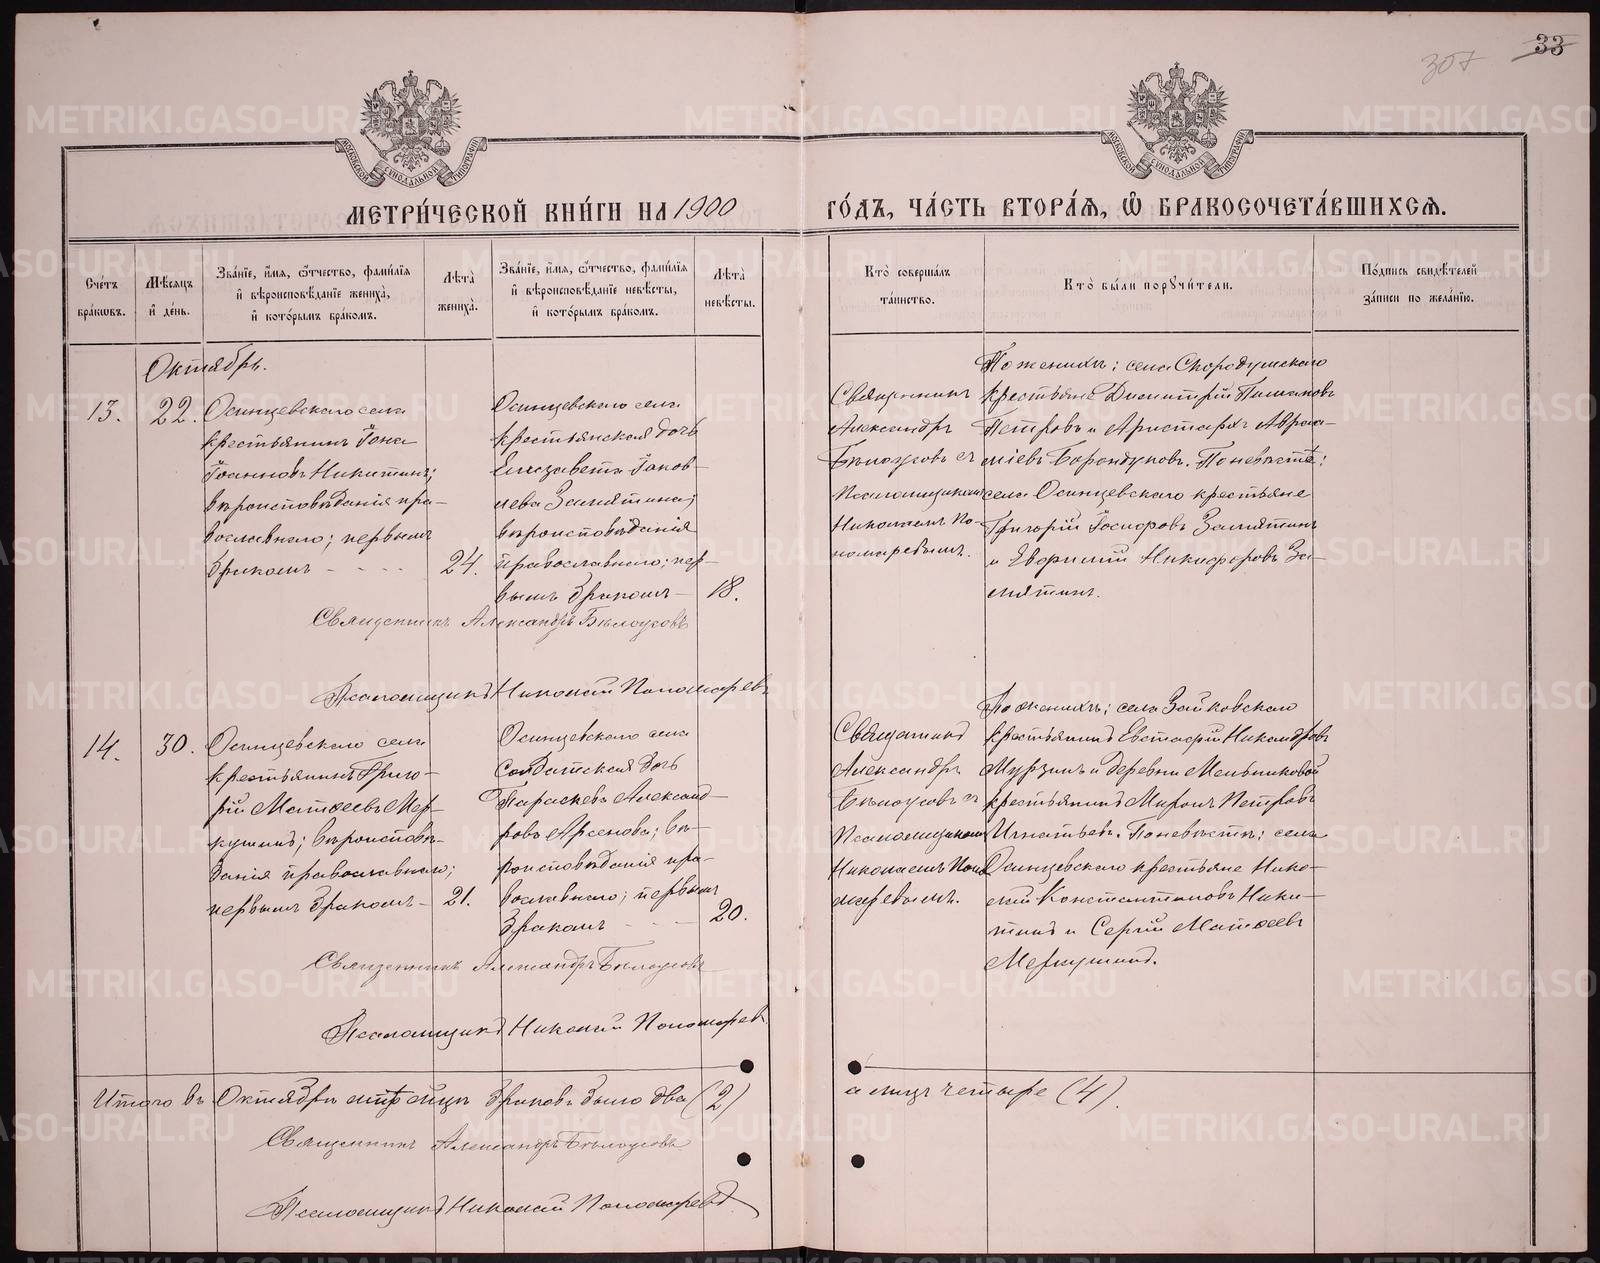 33
307
МЕТРИ́ЧЕСКОЙ КНИ́ГИ НА 1900
ГО́ДЪ, ЧА́СТЬ ВТОРА́Ѧ, Ѽ БРАКОСОЧЕТА́ВШИХСѦ.
Сче́тъ бра́кѡвъ.
Мѣ́сяцъ и҆ де́нь.
Зва́нїе, и҆́мѧ, ѻ҆́тчество, фами́лїѧ
и҆ вѣроисповѣ́данїе жениха̀,
и҆ кото́рымъ бра́комъ.
Лѣ́та̀
жениха̀.
Зва́нїе, и҆́мѧ, ѻ҆́тчество, фами́лїѧ
и҆ вѣроисповѣ́данїе невѣ́сты,
и҆ кото́рымъ бра́комъ.
Лѣ́та̀
невѣ́сты.
Кто̀ соверша́лъ
та́инство.
Кто̀ бы́ли порꙋчи́тели.
По́дпись свидѣ́телей
за́писи по жела́нїю.
Октябрь.
13.
22.
Осинцевскаго села
крестьянинъ Іона
Іоанновъ Никитинъ;
вѣроисповѣданія пра-
вославнаго; первымъ
бракомъ - - - -
24.
Осинцевскаго села
крестьянская дочь
Елизавета Іаков-
лева Замятина;
вѣроисповѣданія
православнаго; пер-
вымъ бракомъ -
18.
Священникъ
Александръ
Бѣлоусовъ съ
Псаломщикомъ
Николаемъ По-
номаревымъ.
По женихѣ; села Скородумскаго
крестьяне Димитрій
Петровъ и Аристархъ Авраа-
міевъ Борондуковъ. По невѣстѣ;
села Осинцевскаго крестьяне
Григорій Іосифовъ Замятинъ
и Евфимій Никифоровъ За-
мятинъ.
Священникъ Александръ Бѣлоусовъ
Псаломщикъ Николай Пономаревъ
14.
30.
Осинцевскаго села
крестьянинъ Григо-
рій Матѳеевъ Мер-
кушинъ; вѣроисповѣ-
данія православнаго;
первымъ бракомъ -
21.
Осинцевскаго села
Солдатская дочь
Параскева Александ-
рова Арсенова; вѣ-
роисповѣданія пра-
вославнаго; первымъ
бракомъ - - -
20.
Священникъ
Александръ
Бѣлоусовъ съ
Псаломщикомъ
Николаемъ Поно
маревымъ.
По женихѣ; села Зайковскаго
крестьянинъ Евстафій Никандровъ
Мурзинъ и деревни Мельниковой
крестьянинъ Миронъ Петровъ
Игнатьевъ. По невѣстѣ; села
Осинцевскаго крестьяне Нико-
лай Константиновъ Ники-
тинъ и Сергій Матѳеевъ
Меркушинъ.
Священникъ Александръ Бѣлоусовъ
Псаломщикъ Николай Пономаревъ
Итого въ Октябрѣ мѣсяцѣ браковъ было два (2)
а лицъ четыре (4).
Священникъ Александръ Бѣлоусовъ
Псаломщикъ Николай Пономаревъ